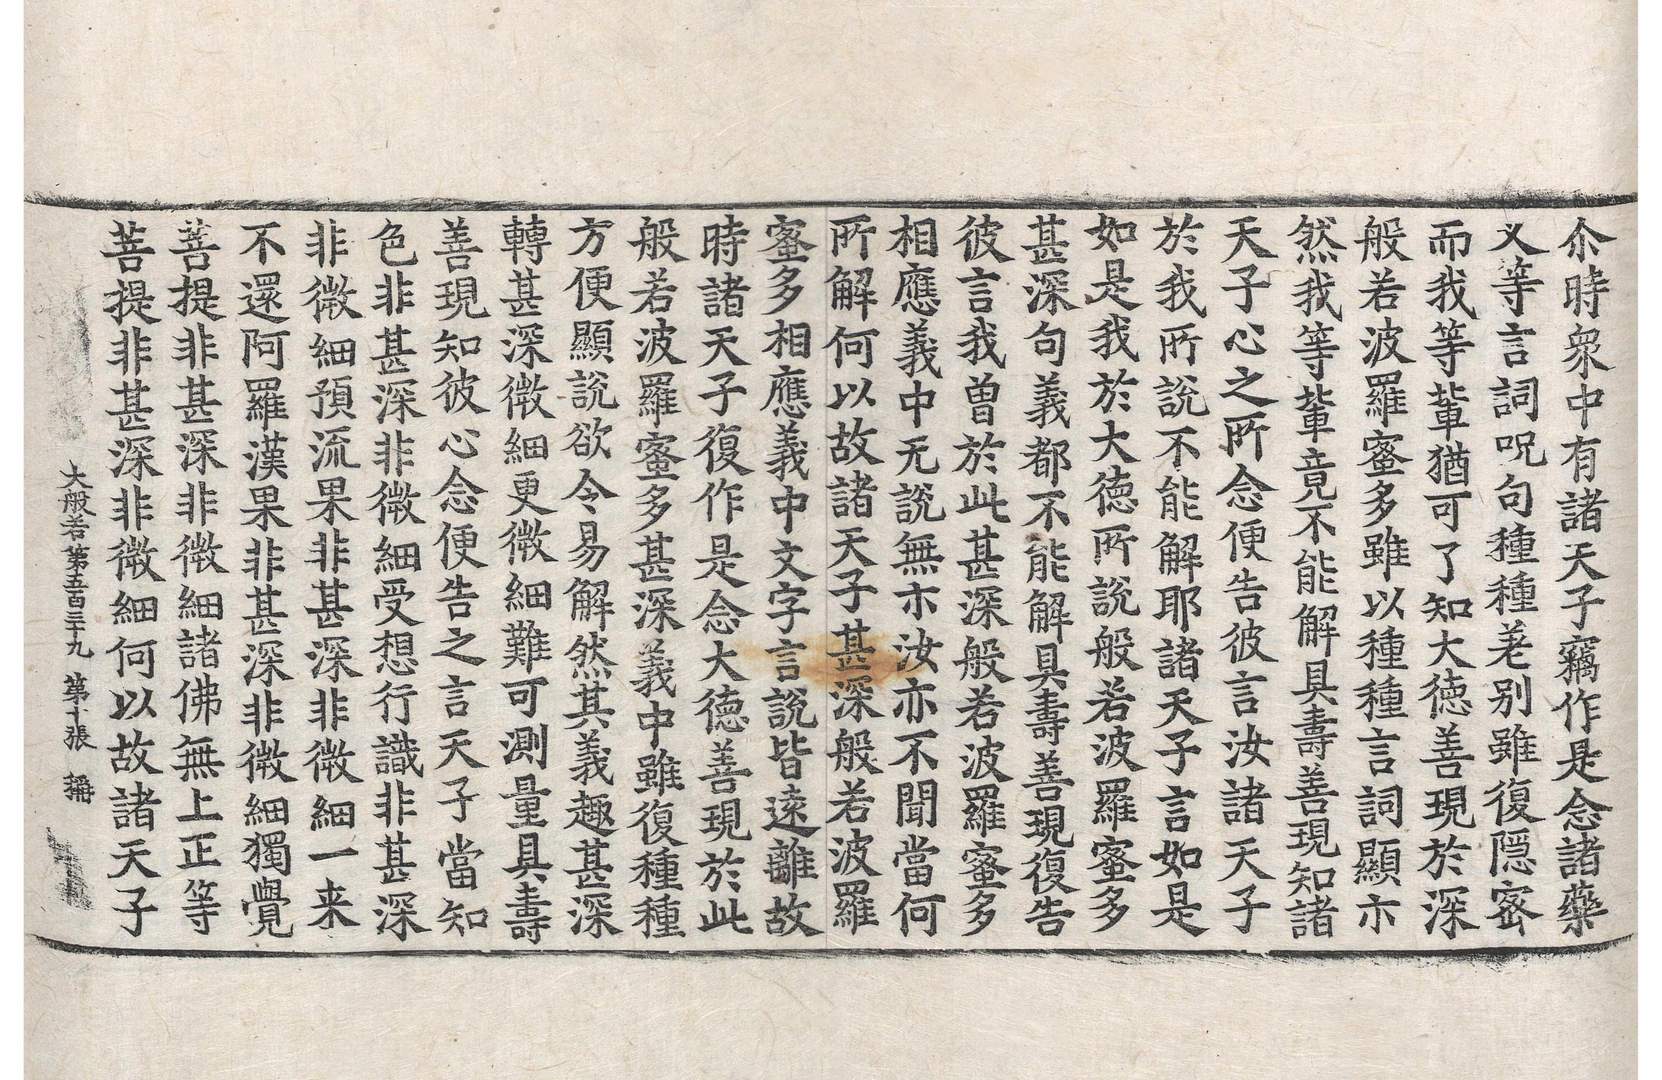 尒時衆中有諸天子竊作是念諸藥
叉等言詞呪句種種差別雖復隱密
而我等輩猶可了知大德善現於深
般若波羅蜜多雖以種種言詞顯示
然我等輩竟不能解具壽善現知諸
天子心之所念便告彼言汝諸天子
於我所說不能解耶諸天子言如是
如是我於大德所說般若波羅蜜多
甚深句義都不能解具壽善現復告
彼言我曾於此甚深般若波羅蜜多
相應義中无說無示汝亦不聞當何
所解何以故諸天子甚深般若波羅
蜜多相應義中文字言說皆遠離故
時諸天子復作是念大德善現於此
般若波羅蜜多甚深義中雖復種種
方便顯說欲令易解然其義趣甚深
轉甚深微細更微細難可測量具壽
善現知彼心念便告之言天子當知
色非甚深非微細受想行識非甚深
非微細預流果非甚深非微細一来
不還阿羅漢果非甚深非微細獨覺
菩提非甚深非微細諸佛無上正等
菩提非甚深非微細何以故諸天子
大般若第五百三十九 第十張 稱